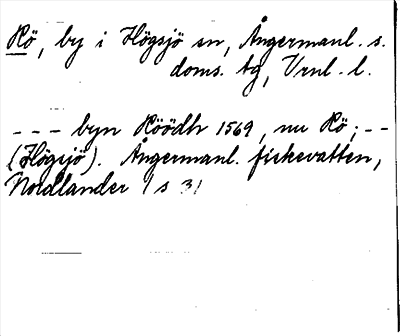 Rö, by i Högsjö sn, Ångermanl. s.
doms. tg, Vrnl. l.
- - - byn Röödh 1569, nu Rö; - -
(Högsjö). Ångermanl. fiskevatten,
Nordlander 1 s 31